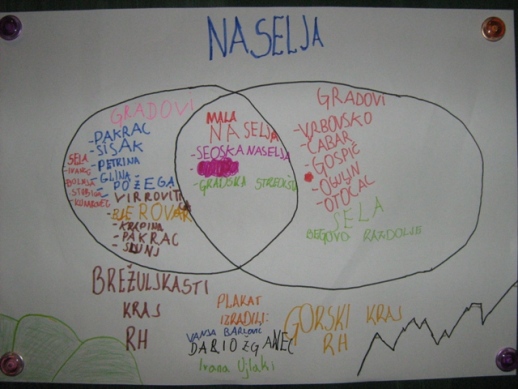 NASELJA
GRADOVI
-PAKRAC
-SISAK
-PETRINA
-GLINA
-POŽEGA
VIRROVITA
BJELOVAR
-KRAPINA
-PAKRAC
-SLUNJ
SELA
MALA
NASELJA
-SEOSKA NASELJA
GRADOVI
-VRBOVSKO
-ČABAR
-GOSPIĆ
-OTOČAC
SELA
BEGOVO RAZDOLJE
BREŽULJKASTI
KRAJ
RH
PLAKAT
IZRADILI:
VANJA BARLOVIĆ
DARIO ŽGANEC
Ivana Ujlaki
GORSKI KRAJ
RH